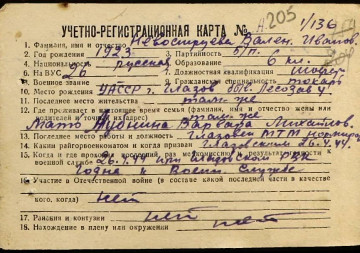 А205 1/136
УЧЕТНО-РЕГИСТРАЦИОННАЯ КАРТА №
1. Фамилия, имя и отчество Вален. Иванов.
2. Год рождения 1923 3. Партийность б/п.
4. Национальность русская 5. Образование 6 кл.
6. На ВУС 26 7. Должностная квалификация шофер
8. Военное звание 9. Гражданская специальность токарь
10. Место рождения УАССР г. Глазов
11. Последнее место жительства там-же
12. Где проживает в настоящее время семья (фамилия, имя и отчество жены или
родителей и точный их адрес) там-же
Мать
13. Последнее место работы и должность Глазовск МТМ
14. Каким райгорвоенкоматом и когда призван Глазовским 26.4.44
15. Когда и где проходил
военной службе 26.4.44 при Глазовском РВК
Годен к Воен. Службе
16. Участие в Отечественной войне (в составе какой последней части в качестве
кого, когда) нет
17. Ранения и контузии нет
18. Нахождение в плену или окружении нет